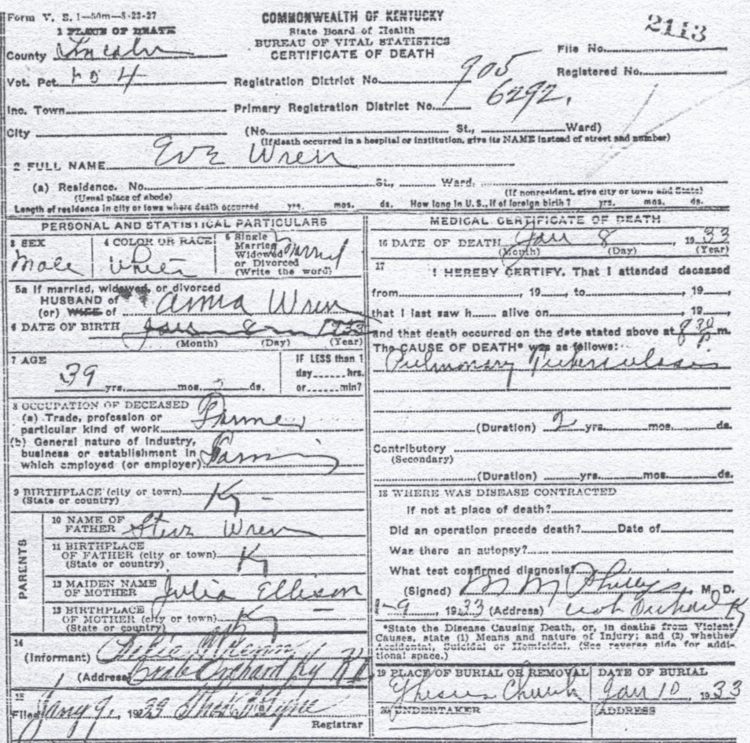 Form V. S. 1—50m—8-23-27
COMMONWEALTH OF KENTUCKY
State Board of Health
BUREAU OF VITAL STATISTICS
CERTIFICATE OF DEATH
2113
1 PLACE OF DEATH
County Lincoln
File No.
Vot. Pct. 4
Registration District No. 905
Registered No.
Inc. Town
Primary Registration District No. 6292.
City (No. St., Ward)
(If death occurred in a hospital or institution, give its NAME instead of street and number)
2 FULL NAME Wren
(a) Residence. No. St., Ward.
(Usual place of abode) (If nonresident, give city or town and State)
Length of residence in city or town where death occurred yrs. mos. ds. How long in U. S., if of foreign birth? yrs. mos. ds.
PERSONAL AND STATISTICAL PARTICULARS
3 SEX Male
4 COLOR OR RACE White
5 Single
Married
Widowed
or Divorced
(Write the word) Married
5a If married, widowed, or divorced
HUSBAND of
(or) WIFE of Wren
6 DATE OF BIRTH Jan 8 1933
(Month) (Day) (Year)
7 AGE
39 yrs. mos. ds.
IF LESS than 1
day hrs.
or min?
8 OCCUPATION OF DECEASED
(a) Trade, profession or
particular kind of work Farmer
(b) General nature of Industry,
business or establishment in
which employed (or employer) Farming
9 BIRTHPLACE (city or town)
(State or country) Ky
PARENTS
10 NAME OF
FATHER Wren
11 BIRTHPLACE
OF FATHER (city or town)
(State or country) Ky
12 MAIDEN NAME
OF MOTHER Julia Ellison
13 BIRTHPLACE
OF MOTHER (city or town)
(State or country) Ky
14
(Informant)
(Address) Crab Orchard Ky
15
Filed Jany 9, 19
Registrar
MEDICAL CERTIFICATE OF DEATH
16 DATE OF DEATH Jan 8 1933
(Month) (Day) (Year)
17
I HEREBY CERTIFY, That I attended deceased
from , 19 , to , 19
that I last saw h alive on , 19
and that death occurred on the date stated above at 8 30 P m.
The CAUSE OF DEATH* was as follows:
Pulmonary Tuberculosis
(Duration) 2 yrs. mos. ds.
Contributory
(Secondary)
(Duration) yrs. mos. ds.
18 WHERE WAS DISEASE CONTRACTED
If not at place of death?
Did an operation precede death? Date of
Was there an autopsy?
What test confirmed diagnosis?
(Signed) M M Phillips M. D.
1-9 1933 (Address) Crab Orchard Ky
*State the Disease Causing Death, or, in deaths from Violent
Causes, state (1) Means and nature of Injury; and (2) whether
Accidental, Suicidal or Homicidal. (See reverse side for addi-
tional space.)
19 PLACE OF BURIAL OR REMOVAL
Church
DATE OF BURIAL
Jan 10 1933
20 UNDERTAKER
ADDRESS